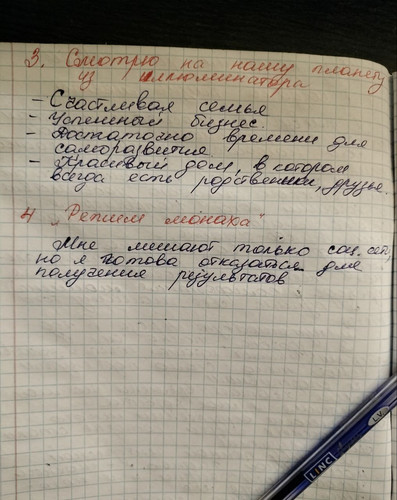 3. Смотрю на нашу планету
из иллюминатора
- Счастливая семья
- Успешный бизнес.
- Достаточно времени для
саморазвития
- Красивый дом, в котором
всегда есть родственники, друзья.
4 "Режим монаха"
Мне мешают только соц. сети,
но я готова отказаться для
получения результатов
LINC